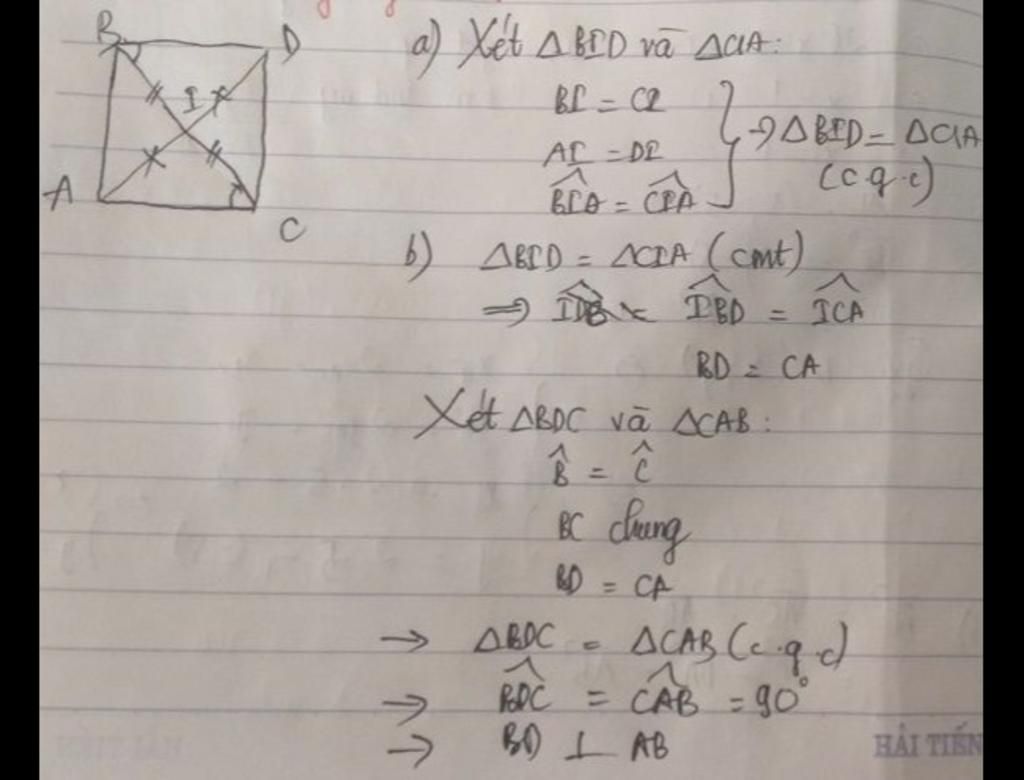 B
D
I
A
C
a) Xét ΔBID và ΔCIA:
BI = CI
AI = DI
→ ΔBID = ΔCIA
(c.g.c)
b) ΔBID = ΔCIA (cmt)
⇒ IBD = ICA
BD = CA
Xét ΔBDC và ΔCAB:
B̂ = Ĉ
BC chung
BD = CA
→ ΔBDC = ΔCAB (c.g.c)
→ BDC = CAB = 90°
→ BD ⊥ AB
HẢI TIẾN